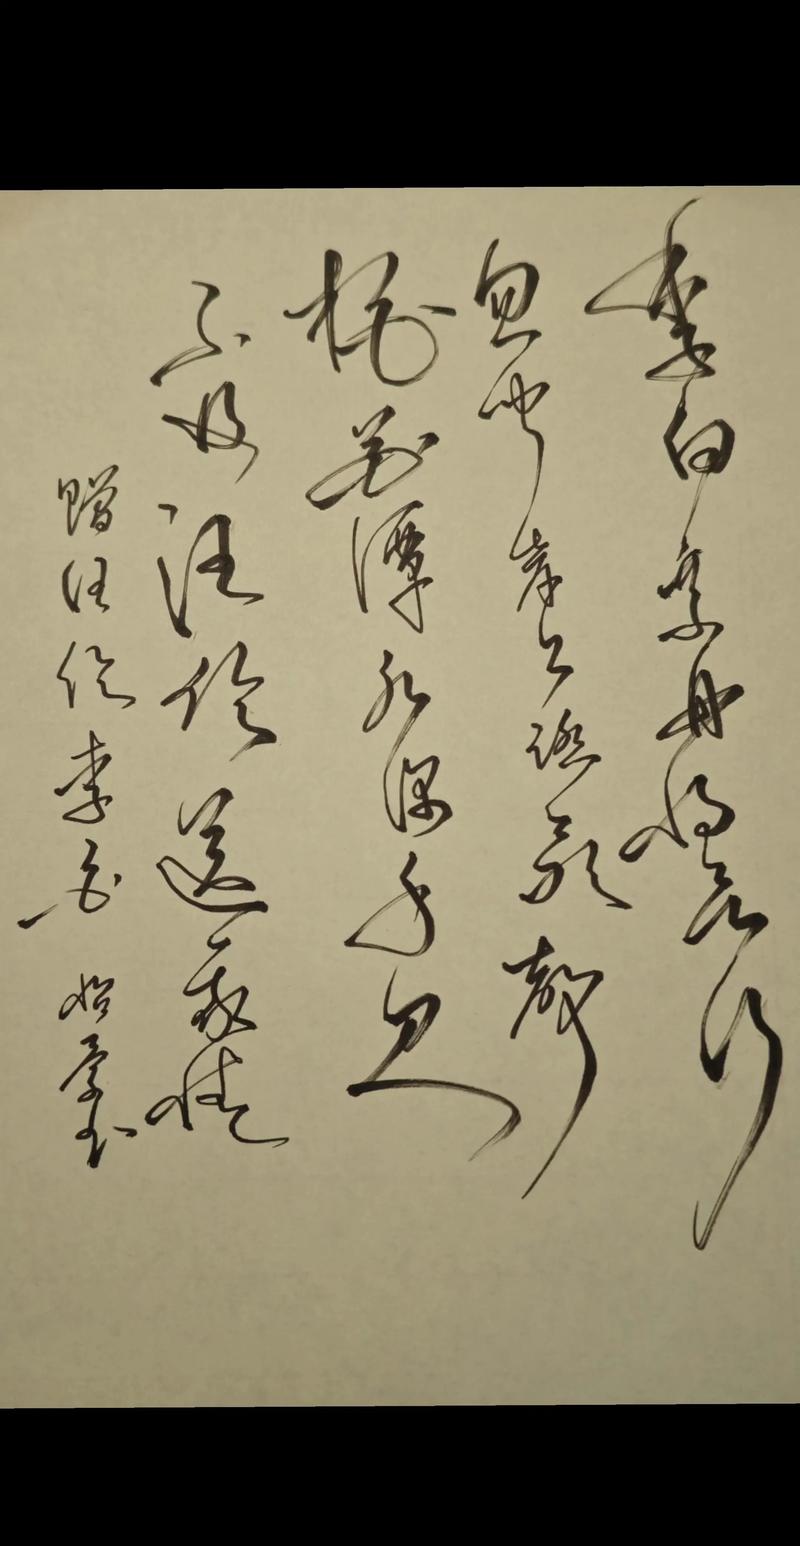 李白乘舟将欲行
忽闻岸上踏歌声
桃花潭水深千尺
不及汪伦送我情
赠汪伦 李白 书